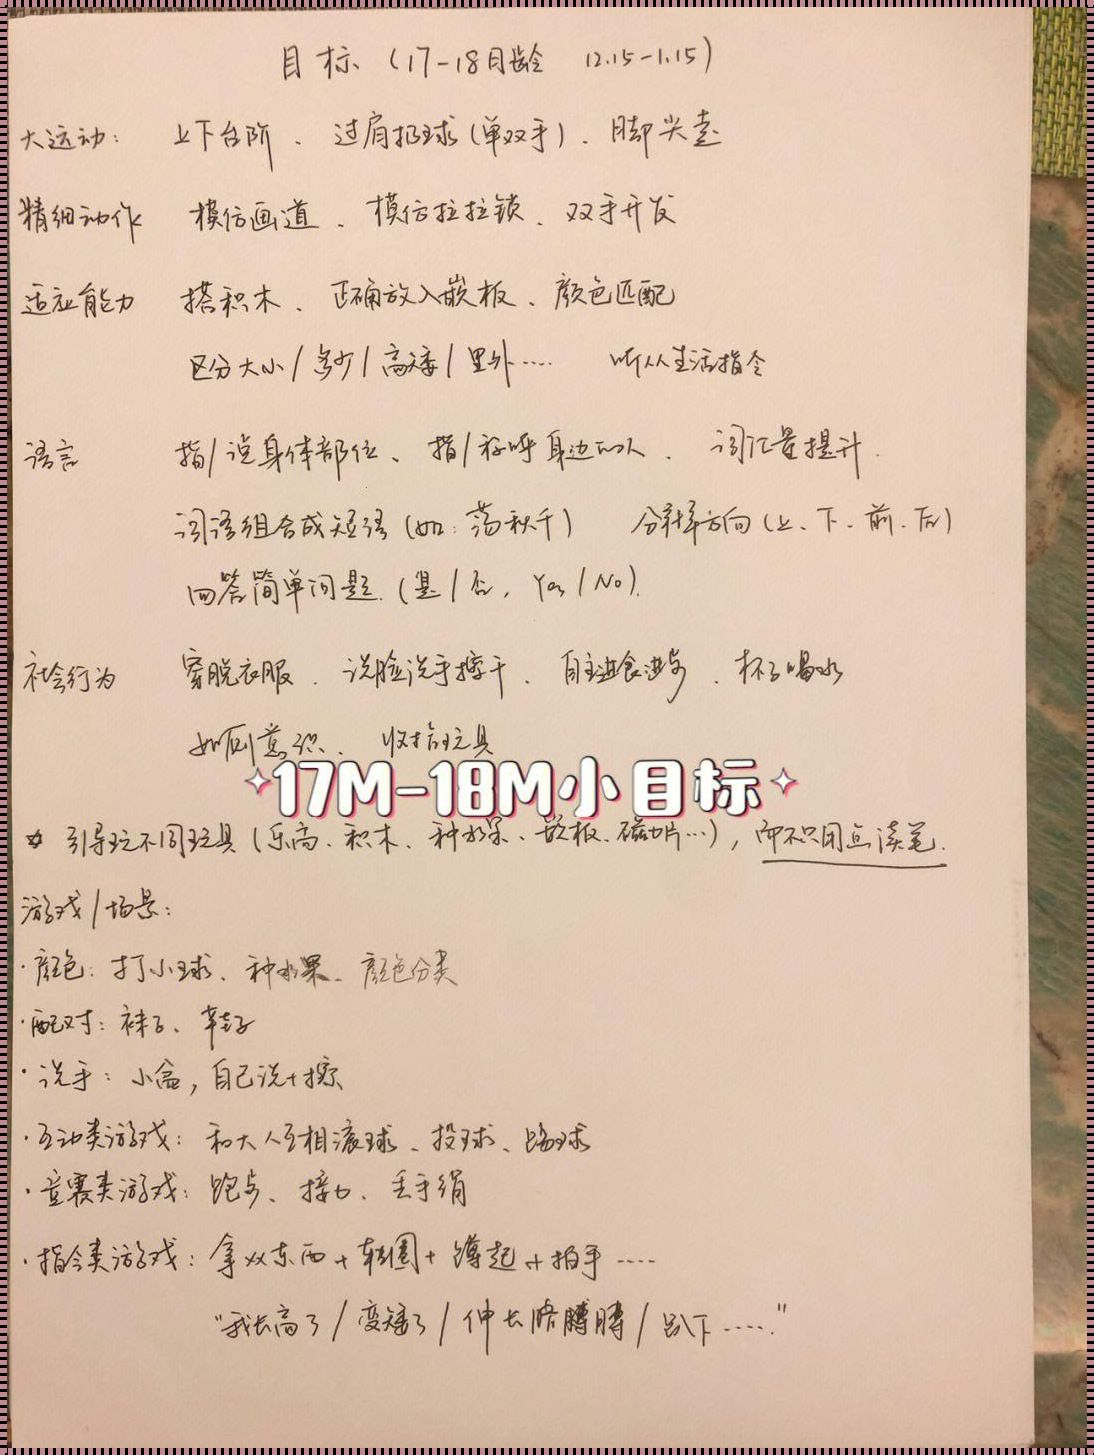 目标（17-18月龄 12.15-1.15）
大运动： 上下台阶、过肩扔球（单双手）、脚尖走
精细动作 模仿画道、模仿拉拉锁、双手开发
适应能力 搭积木、正确放入嵌板、颜色匹配
区分大小/多少/高矮/里外…… 听从生活指令
语言 指/说身体部位、指/称呼身边的人、词汇量提升.
词语组合成短语（如：荡秋千） 分辨方向（上、下、前、后）
回答简单问题.（是/否，Yes/No).
社会行为 穿脱衣服、洗脸洗手擦干、自主进食进步、杯子喝水
如厕意识、收拾玩具
17M-18M小目标
☆ 引导玩不同玩具（乐高、积木、种水果、嵌板、磁力片…），而不只用点读笔.
游戏/场景：
·颜色：打小球、种水果、颜色分类
·配对：袜子、
·洗手：小盆，自己洗+擦
·互动类游戏：和大人互相滚球、投球、踢球
·竞赛类游戏：跑步、接力、丢手绢
·指令类游戏：拿xx东西+转圈+蹲起+拍手……
“我长高了/变矮了/伸长胳膊/趴下……”